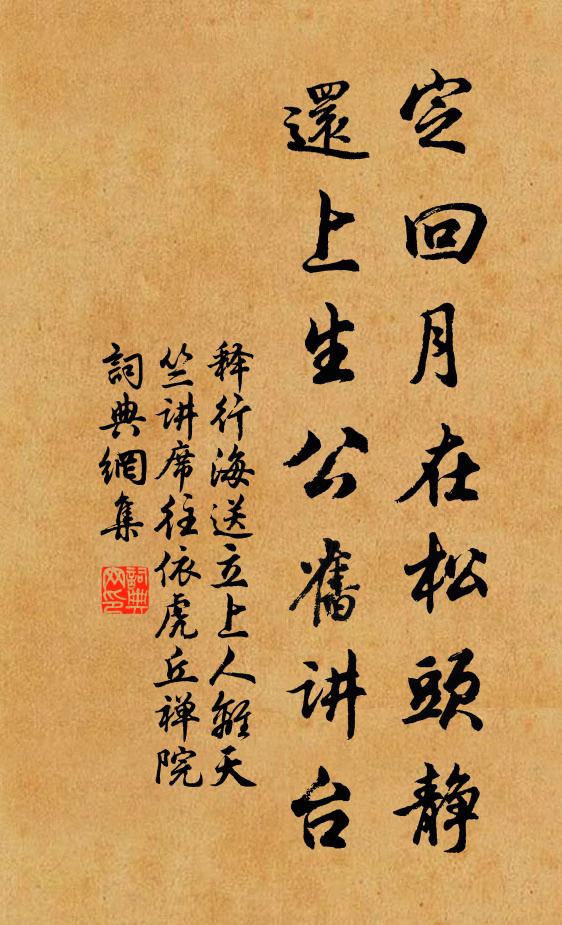 定回月在松頭静
還上生公舊讲台
释行海送立上人離天
竺讲席往依虎丘禅院
詞典網集
詞典
网印